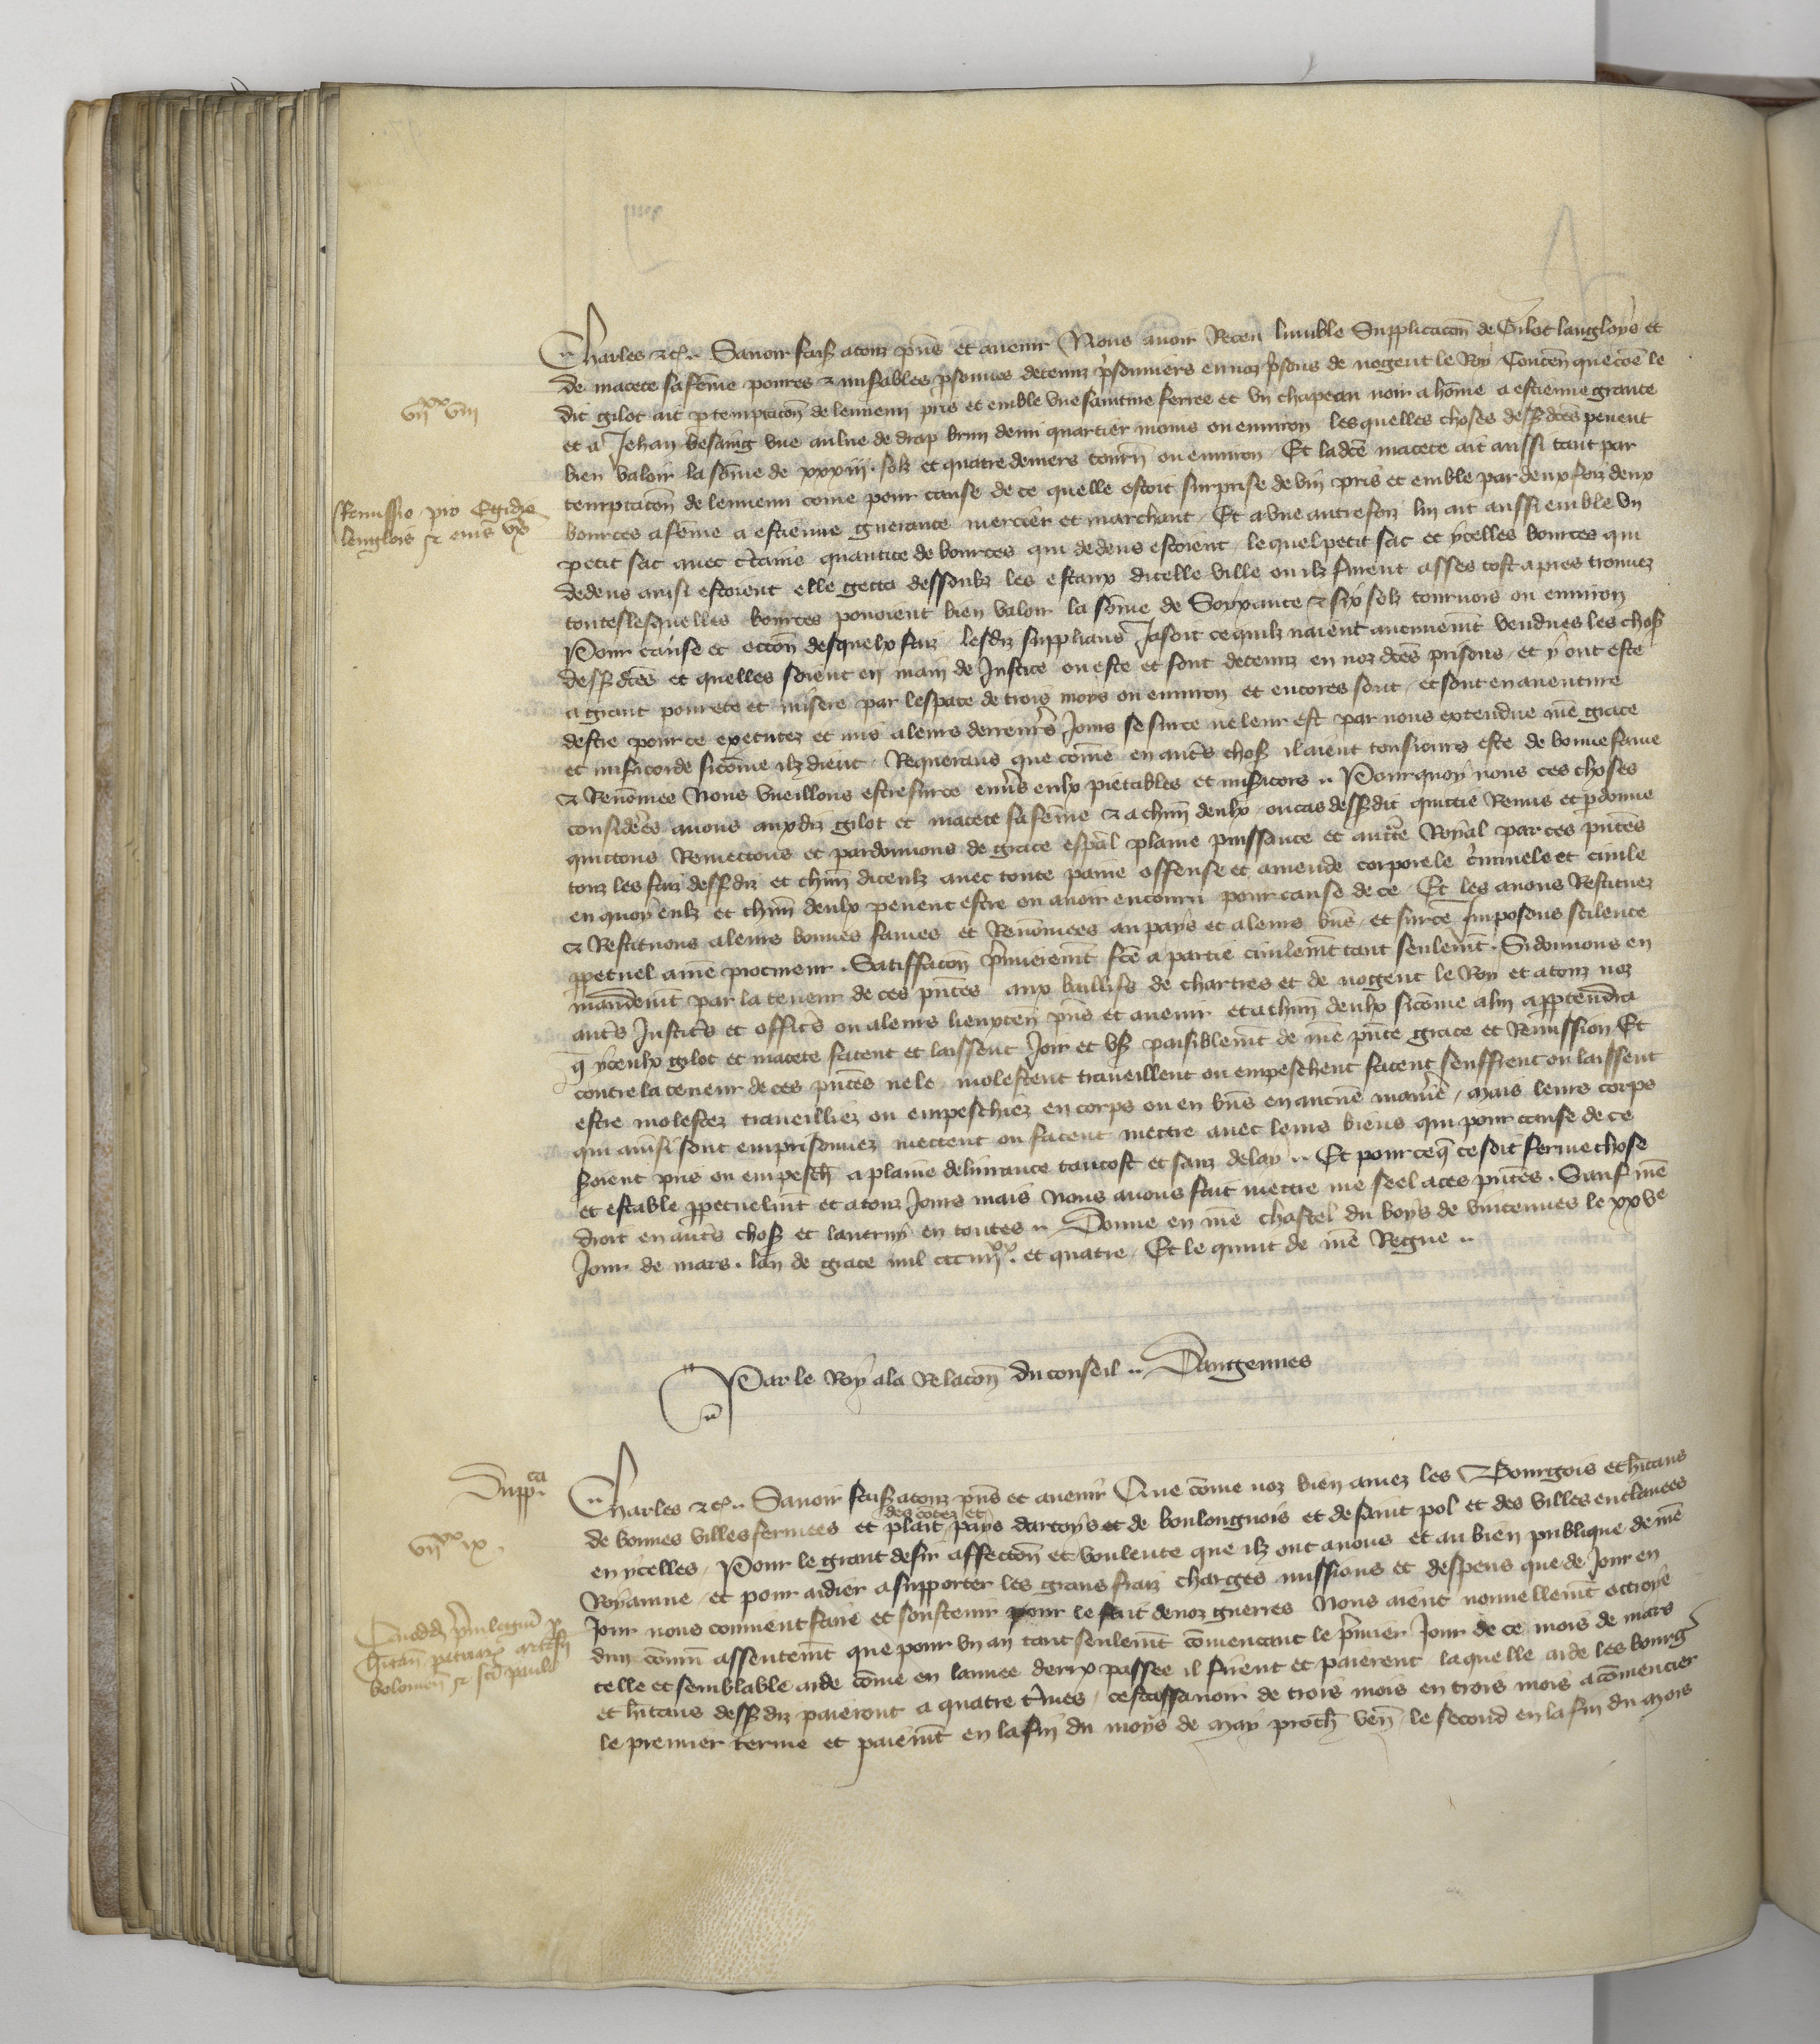 Charles etc. Savoir faiz a touz pñs et avenir Nous avoir Receu lumble Supplicacõn de Gilot langloys et
de macete sa fẽme povres et misables psonnes detenuz prisonniers en noz prisons de nogent le Roy Contenẽ que cõe le
dit gilot ait p temptacõn de lennemi pris et emblé une sainture ferree et un chapeau noir a hõme a estienne grante
et a Jehan besaing une aulne de drap brun demi quartier moins ou environ lesquelles choses dessdctes pevent
bien valoir la sõme de xxxiii. solz et quatre deniers tourñ ou environ Et ladcte macete ait aussi tant par
temptacõn de lennemi cõme pour cause de ce quelle estoit surprise de vin pris et emblé par deux foiz deux
bources a fẽme a estienne guerante mercier et marchant Et a une autre foiz lui ait aussi emble un
petit sac avec ctaine quantite de bources qui dedens estoient lequel petit sac et ycelles bources qui
dedens ainsi estoient elle getta dessoubz les estaux dicelle ville ou ilz furent asses tost apres trouvez
toutes lesquelles bources povoient bien valoir la sõme de Soixante et six solz tournois ou environ
Pour cause et occõn desquelx faiz lesdiz supplians Jasoit ce quilz naient aucunemt vendues les choß
dessdctes et quelles soient en main de Justice ont este et sont detenuz en noz dctes prisons et y ont este
a grant povrete et misere par lespace de trois moys ou environ et encores sont et sont en aventure
destre pour ce executez et mis a leurs derreniers Jours se sur ce ne leur est par nous extendue nre grace
et misicorde sicõme ilz dient Requerans que cõme en auts choß il aient tousiours este de bonne fame
et Renõmee Nous vueillons estre sur ce envs eulx piteables et misicors Pourquoy nous ces choses
considerees avons auxdiz gilot et macete sa fẽme et a chũn deulx ou cas dessdit quittie Remis et pdonne
quittons Remettons et pardonnons de grace espal plaine puissance et auctte Royal par ces pñtes
touz les faiz dessdiz et chũn diceulx avec toute paine offense et amende corporele criminele et civile
en quoy eulx et chũn deulx pevent estre ou avoir encouru pour cause de ce Et les avons Restituez
et Restituons a leurs bonnes fames et Renõmees au pays et a leurs bñs et sur ce Imposons scilence
ppetuel a nre procureur. Satisfacõn premieremt fcte a partie civilemt tant seulemt. Si donnons en
mandemt par la teneur de ces pñtes aux baillifs de chartres et de nogent le Roy et a touz noz
auts Justics et offics ou a leurs lieuxteñ pñs et avenir et a chũn deulx sicõme a lui apptendra
q yceulx gilot et macete facent et laissent Joir et us paisiblemt de nre pñte grace et Remission Et
contre la teneur de ces pñtes ne le molestent traveillent ou empeschent facent seuffrent ou laissent
estre molestez traveilliez ou empeschiez en corps ou en bñs en aucune maniere, mais leurs corps
qui ainsi sont emprisonnez mettent ou facent mettre avec leurs biens qui pour cause de ce
soient pris ou empesch a plaine delivrance tantost et sanz delay Et pour ce q ce soit ferme chose
et estable ppetuelmt et a touz Jours mais Nous avons fait mettre nre seel a ces pñtes. Sauf nre
droit en auts choß et lautruy en toutes Donne en nre chastel du boys de vincennes le xxve
Jour de mars. lan de grace mil ccc iiiixx. et quatre Et le quint de nre Regne
Par le Roy a la Relacõn du conseil Dangennes
Charles etc. Savoir faiß a touz pñs et avenir Que cõme noz bien amez les Bourgois et hitans
des citez et
de bonnes villes fermees et plait pays dartoys et de boulongnois et de saint pol et des villes enclavees
en ycelles, Pour le grant desir affeccõn et voulente que ilz ont a nous et au bien publique de nre
Royaume et pour aidier a supporter les grans fraiz charges missions et despens que de Jour en
Jour nous convient faire et soustenir pour le fait de noz guerres Nous aient nouvellemt ottroye
dun cõmũ assentemt que pour un an tant seulemt cõmencant le premier Jour de ce mois de mars
telle et semblable aide cõme en lannee derrx passee il firent et paierent laquelle aide les bourg
et hitans dessdiz paieront a quatre tmes, cest assavoir de trois mois en trois mois a cõmencier
le premier terme et paiemt en la fin du moys de may proch veñ le second en la fin du mois
viixx viii
Remissio pro Egidio
lenglois et eius ux
Duppca
viixx ix.
Quoddam privilegium p
hitañ patriarx artesii
bolonien et sci pauli